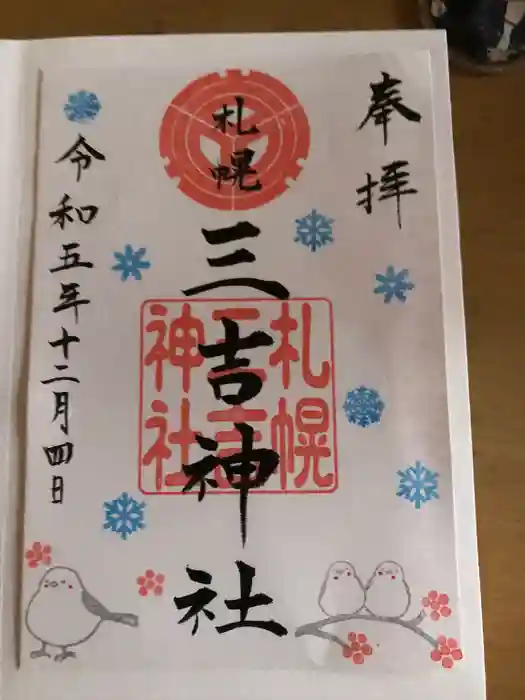 奉拝
札幌
三吉神社
札幌
三吉
神社
令和五年十二月四日